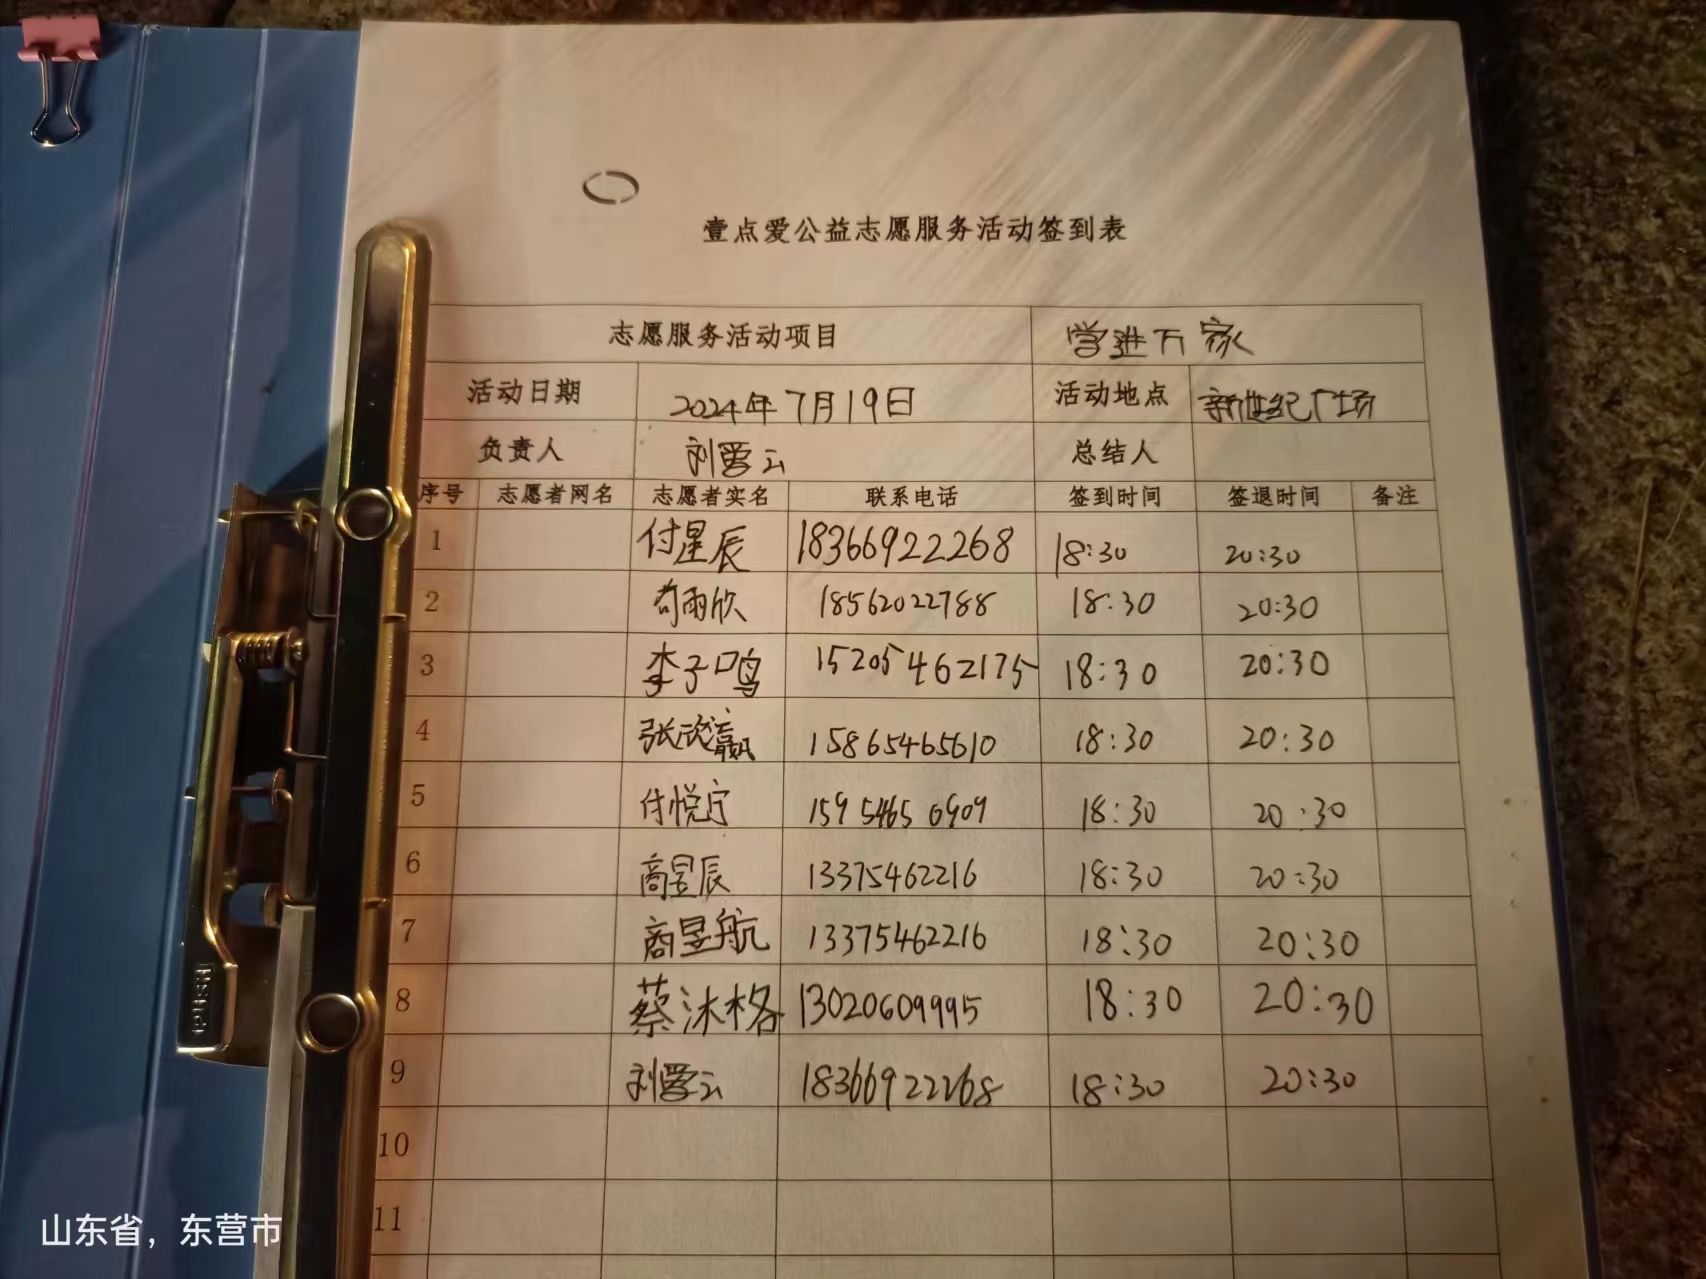 壹点爱公益志愿服务活动签到表
志愿服务活动项目 学进万家
活动日期 2024年7月19日 活动地点 新世纪广场
负责人 刘爱云 总结人
序号 志愿者网名 志愿者实名 联系电话 签到时间 签退时间 备注
1 付星辰 18366922268 18:30 20:30
2 苟雨欣 18562022788 18:30 20:30
3 李子鸣 15205462175 18:30 20:30
4 张欣赢 15865465610 18:30 20:30
5 付悦宁 15954656909 18:30 20:30
6 商昱辰 13375462216 18:30 20:30
7 商昱航 13375462216 18:30 20:30
8 蔡沐格 13020609995 18:30 20:30
9 刘爱云 18366922268 18:30 20:30
10
11
山东省，东营市